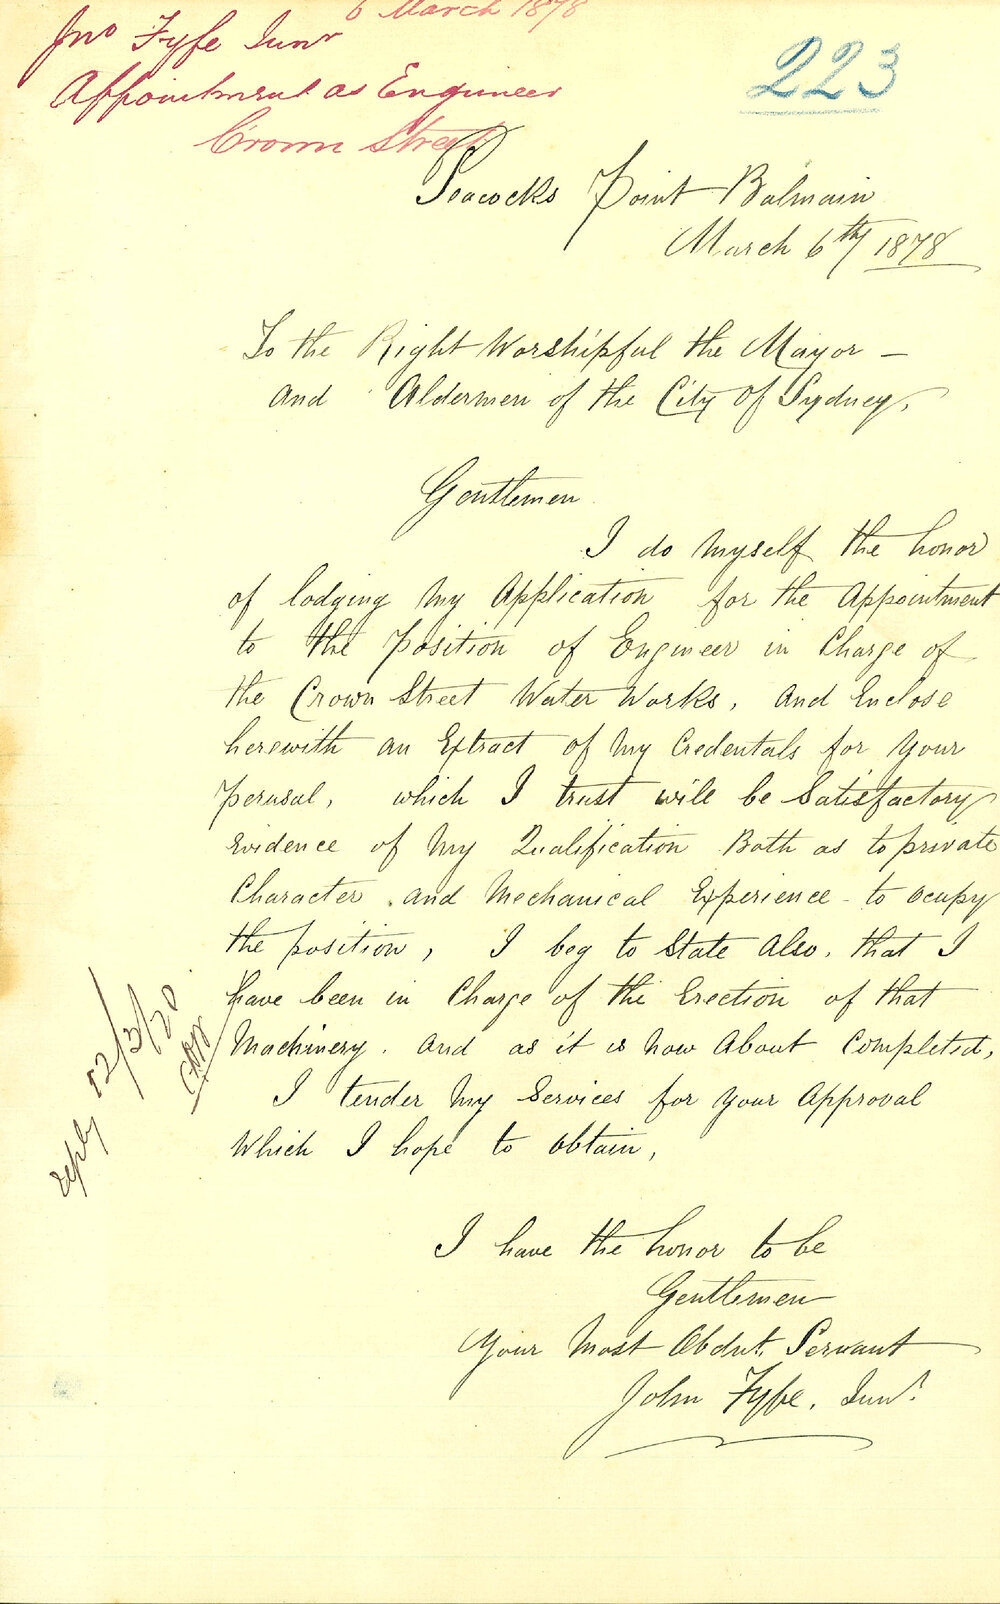 6 March 1878
Jno Fyfe Junr
Appointment as Engineer
Crown Street
223
Peacocks Point Balmain
March 6th 1878
To the Right Worshipful the Mayor –
and Aldermen of the City of Sydney,
Gentlemen
I do myself the honor
of lodging my Application for the Appointment
to the position of Engineer in Charge of
the Crown Street Water Works, and Enclose
herewith an Extract of my Credentals for your
perusal, which I trust will be Satisfactory
Evidence of my Qualification Both as to private
Character and Mechanical Experience to ocupy
the position, I beg to State also, that I
have been in Charge of the Erection of that
Machinery. and as it is now About Completed,
I tender my Services for your Approval
Which I hope to obtain,
I have the honor to be
Gentlemen
Your Most Obdnt. Servant
John Fyfe, Junr.
reply